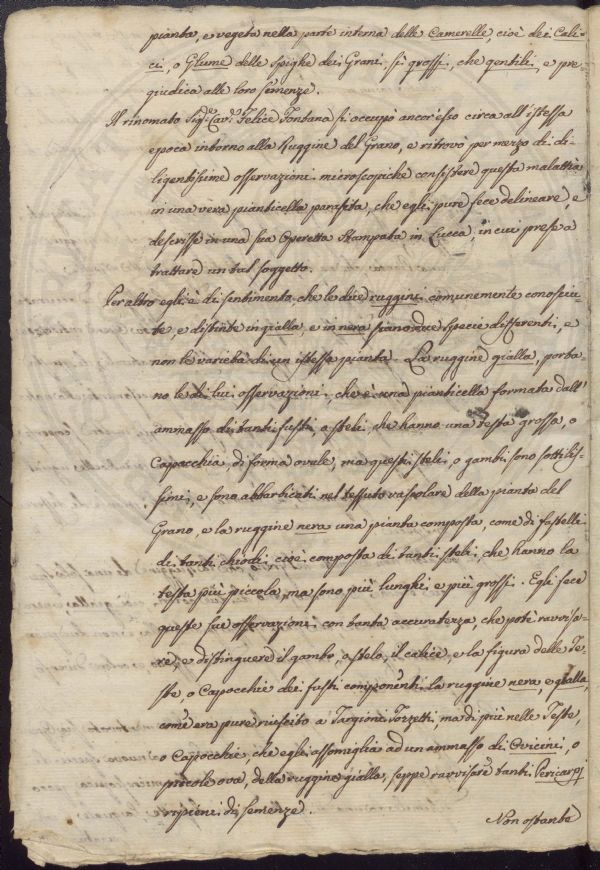 pianta, e vegeta nella parte interna delle Camerelle, cioè dei Cali-
ci, o Glume delle spighe dei Grani sì grossi, che gentili, e pre
giudica alle loro semenze.
Il rinomato Sig.e Cav.e Felice Fontana si occupò ancor'esso circa all'istessa
epoca intorno alla Ruggine del Grano, e ritrovò per mezzo di di-
ligentissime osservazioni microscopiche consistere questa malattia
in una vera pianticella parasita, che egli pure fece delineare, e
descrisse in una sua Operetta Stampata in Lucca, in cui prese a
trattare un tal soggetto.
Per altro egli è di sentimento che le due ruggini comunemente conosciu-
te, e distinte in gialla, e in nera siano due specie differenti, e
non le varietà di un istessa pianta. La ruggine gialla, porta
no le di lui osservazioni, che è una pianticella formata dall'
ammasso di tanti fusti, o steli, che hanno una testa grossa, o
Capocchia, di forma ovale, ma questi steli, o gambi sono sottilis-
simi, e sono abbarbicati nel tessuto vascolare della pianta del
Grano, e la ruggine nera una pianta composta, come di fastelli
di tanti chiodi cioè composta di tanti steli, che hanno la
testa più piccola, ma sono più lunghi e più grossi. Egli fece
queste sue osservazioni con tanta accuratezza, che potè ravvisa-
re, e distinguere il gambo, o stelo, il calice, e la figura delle Te-
ste, o Capocchie dei fusti componenti la ruggine nera, e gialla,
come era pure riuscito a Targioni Tozzetti, ma di più nelle Teste,
o Capocchie, che egli assomiglia ad un ammasso di Ovicini, o
piccole ova, della ruggine gialla, seppe ravvisare tanti Pericarpj
ripieni di semenze.
Non ostante